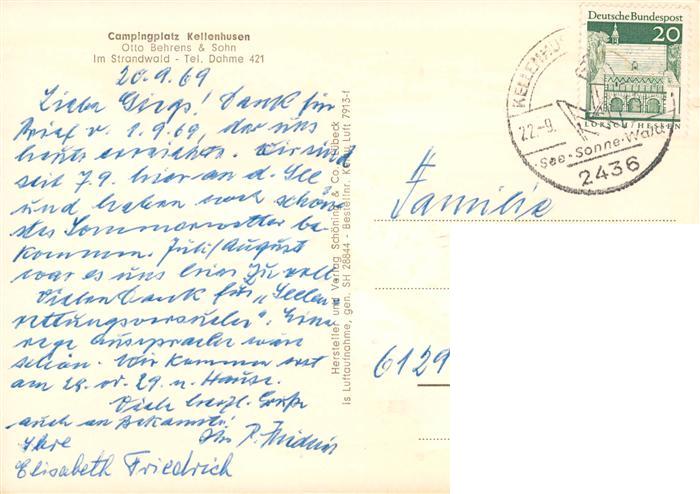 Campingplatz Kellenhusen
Otto Behrens & Sohn
Im Strandwald - Tel. Dahme 421
20.9.69
Liebe Girgs! Dank für
Brief v. 1.9.69, der uns
heute erreichte. Wir sind
seit 7.9. hier an d. See
und haben noch schön
des Sommerwetter be-
kommen. Juli/August
war es uns hier zu voll.
Vielen Dank für „Seelen
rettungsversuche". Eine
rege Aussprache wäre
schön. Wir kommen erst
am 28. od. 29. n. Hause.
Viele herzl. Grüße
auch an Bekannte!
Ihre
Ihr
Elisabeth Friedrich
Hersteller und Verlag Schöning & Co. Lübeck
is Luftaufnahme, gen. SH 28844 - Bestellnr. Luft 7913-f
Deutsche Bundespost
20
LORSCH/HESSEN
KELLENHUS
22.-9.
See-Sonne-Wald
2436
Familie
6129